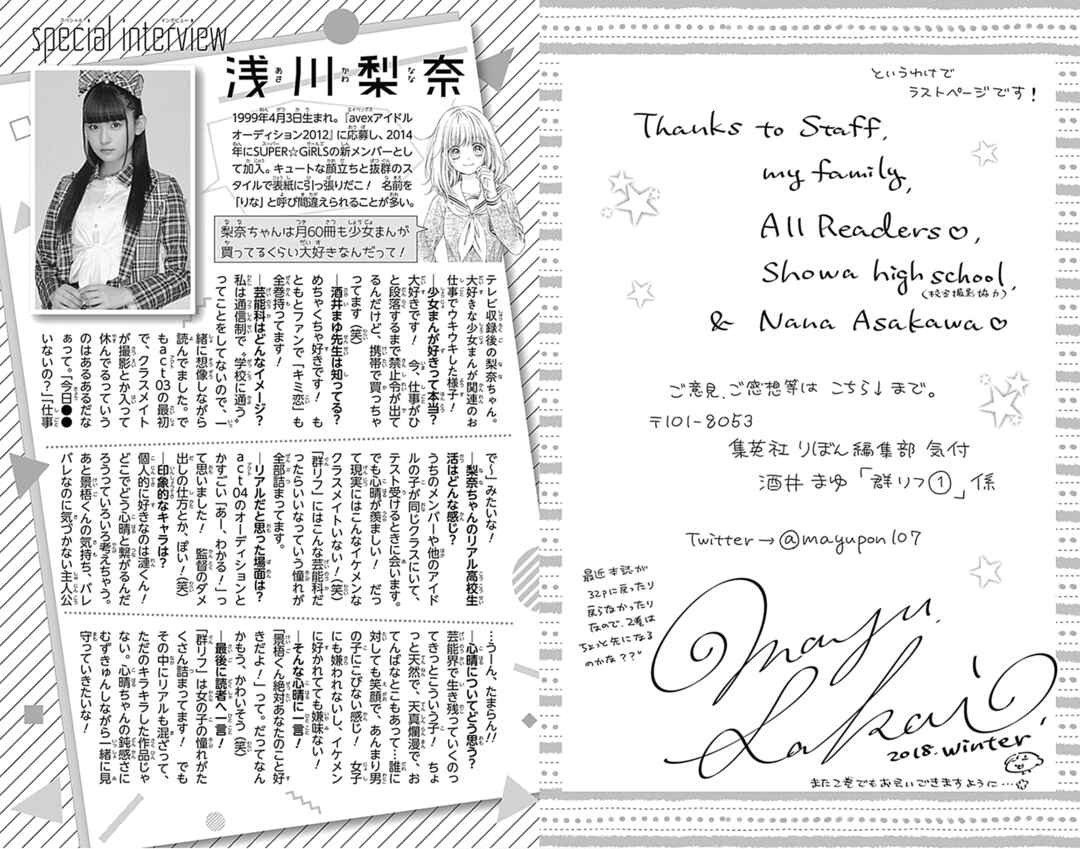 special interview
浅川梨奈
1999年4月3日生まれ。『avexアイドル
オーディション2012』に応募し、2014
年にSUPER☆GiRLSの新メンバーとし
て加入。キュートな顔立ちと抜群のス
タイルで表紙に引っ張りだこ！ 名前を
「りな」と呼び間違えられることが多い。
梨奈ちゃんは月60冊も少女まんが
買ってるくらい大好きなんだって！
テレビ収録後の梨奈ちゃん。
大好きな少女まんが関連のお
仕事でウキウキした様子！
―少女まんが好きって本当？
大好きです！ 今、仕事がひ
と段落するまで禁止令が出て
るんだけど、携帯で買っちゃ
ってます（笑）
―酒井まゆ先生は知ってる？
めちゃくちゃ好きです！ も
ともとファンで「キミ恋」も
全巻持ってます！
―芸能科はどんなイメージ？
私は通信制で〝学校に通う〟
ってことをしてないので、一
緒に想像しながら
読んでました。で
もact03の最初
で、クラスメイト
が撮影とか入って
休んでるっていう
のはあるあるだな
あって。「今日●●
いないの？」「仕事
で～」みたいな！
―梨奈ちゃんのリアル高校生
活はどんな感じ？
うちのメンバーや他のアイド
ルの子が同じクラスにいて、
テスト受けるときに会います。
でも心晴が羨ましい！ だっ
て現実にはこんなイケメンな
クラスメイトいない！（笑）
「群リフ」にはこんな芸能科だ
ったらいいなっていう憧れが
全部詰まってます。
―リアルだと思った場面は？
act04のオーディションと
かすごい「あー、わかる！」っ
て思いました！ 監督のダメ
出しの仕方とか、ぽい！（笑）
―印象的なキャラは？
個人的に好きなのは漣くん！
どこでどう心晴と繋がるんだ
ろうっていろいろ考えちゃう。
あと景悟くんの気持ち、バレ
バレなのに気づかない主人公
…うーん、たまらん!!
―心晴についてどう思う？
芸能界で生き残っていくのっ
てきっとこういう子！ ちょ
っと天然で、天真爛漫で、お
てんばなとこもあって…誰に
対しても笑顔で、あんまり男
の子にこびない感じ！ 女子
にも嫌われないし、イケメン
に好かれてても嫌味ない！
―そんな心晴に一言！
「景悟くん絶対あなたのこと好
きだよ！」って。だってなん
かもう、かわいそう（笑）
―最後に読者へ一言！
「群リフ」は女の子の憧れがた
くさん詰まってます！ でも
その中にリアルも混ざって、
ただのキラキラした作品じゃ
ない。心晴ちゃんの鈍感さに
むずきゅんしながら一緒に見
守っていきたいな！
というわけで
ラストページです！
Thanks to Staff,
my family,
All Readers♡,
Showa high school,
(校舎撮影協力)
& Nana Asakawa♡
ご意見、ご感想等は こちら↓まで。
〒101-8053
集英社 りぼん編集部 気付
酒井まゆ「群リフ①」係
Twitter→@mayupon107
最近本誌が
32pに戻ったり
戻らなかったり
なので、2巻は
ちょっと先になる
のかな？？
Mayu
Sakai
2018.winter
また2巻でもお会いできますように…